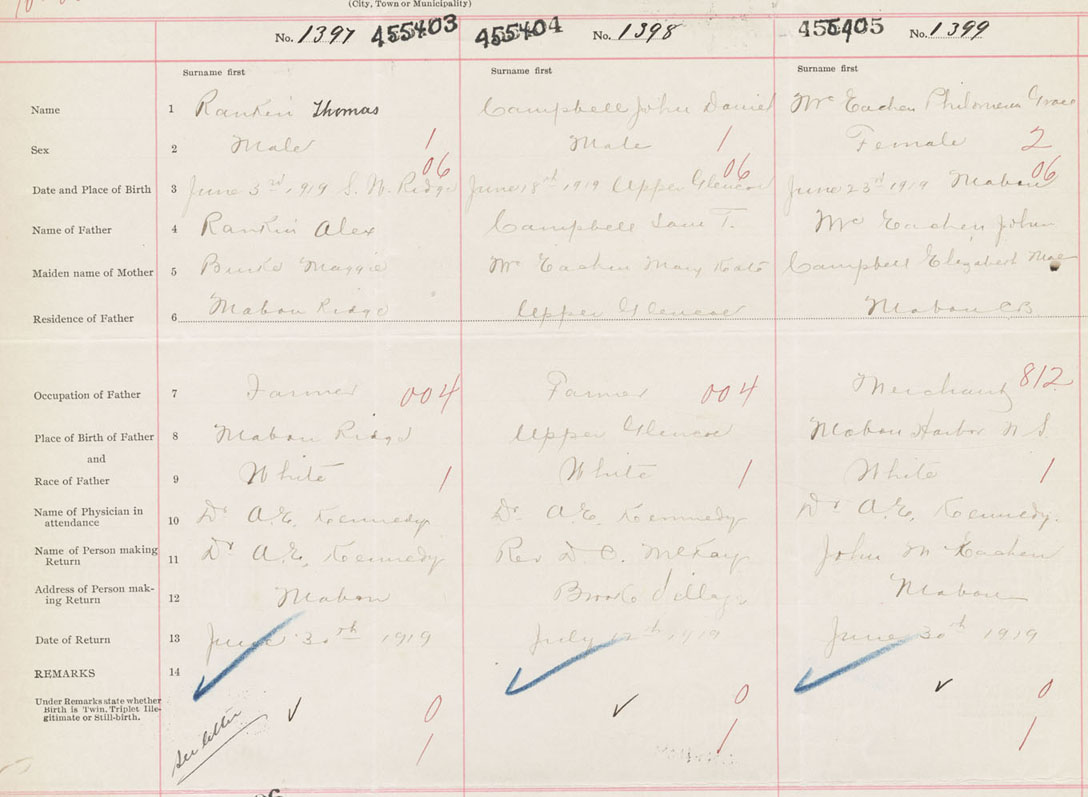 (City, Town or Municipality)
No. 1397 455403 455404 No. 1398 455405 No. 1399
Surname first Surname first Surname first
Name 1 Rankin Thomas Campbell John Daniel Mc Eachen Philomena Grace
Sex 2 Male 1 Male 1 Female 2
06 06 06
Date and Place of Birth 3 June 3rd 1919 S. W. Ridge June 18th 1919 Upper Glencoe June 23rd 1919 Mabou
Name of Father 4 Rankin Alex Campbell T. Mc Eachen John
Maiden name of Mother 5 Burke Maggie Mc Eachen Mary Kate Campbell Elizabeth Mae
Residence of Father 6 Mabou Ridge Upper Glencoe Mabou C.B.
Occupation of Father 7 Farmer 004 Farmer 004 Merchant 812
Place of Birth of Father 8 Mabou Ridge Upper Glencoe Mabou Harbor N S
and
Race of Father 9 White 1 White 1 White 1
Name of Physician in
attendance 10 Dr A.E. Kennedy Dr A.E. Kennedy Dr A.E. Kennedy.
Name of Person making
Return 11 Dr A.E. Kennedy Rev D. C. McKay John McEachen
Address of Person mak-
ing Return 12 Mabou Brook Village Mabou
Date of Return 13 June 30th 1919 July 12th 1919 June 30th 1919
REMARKS 14
Under Remarks state whether
Birth is Twin, Triplet Ille-
gitimate or Still-birth.
see letter ✓ 0 ✓ 0 ✓ 0
1 1 1